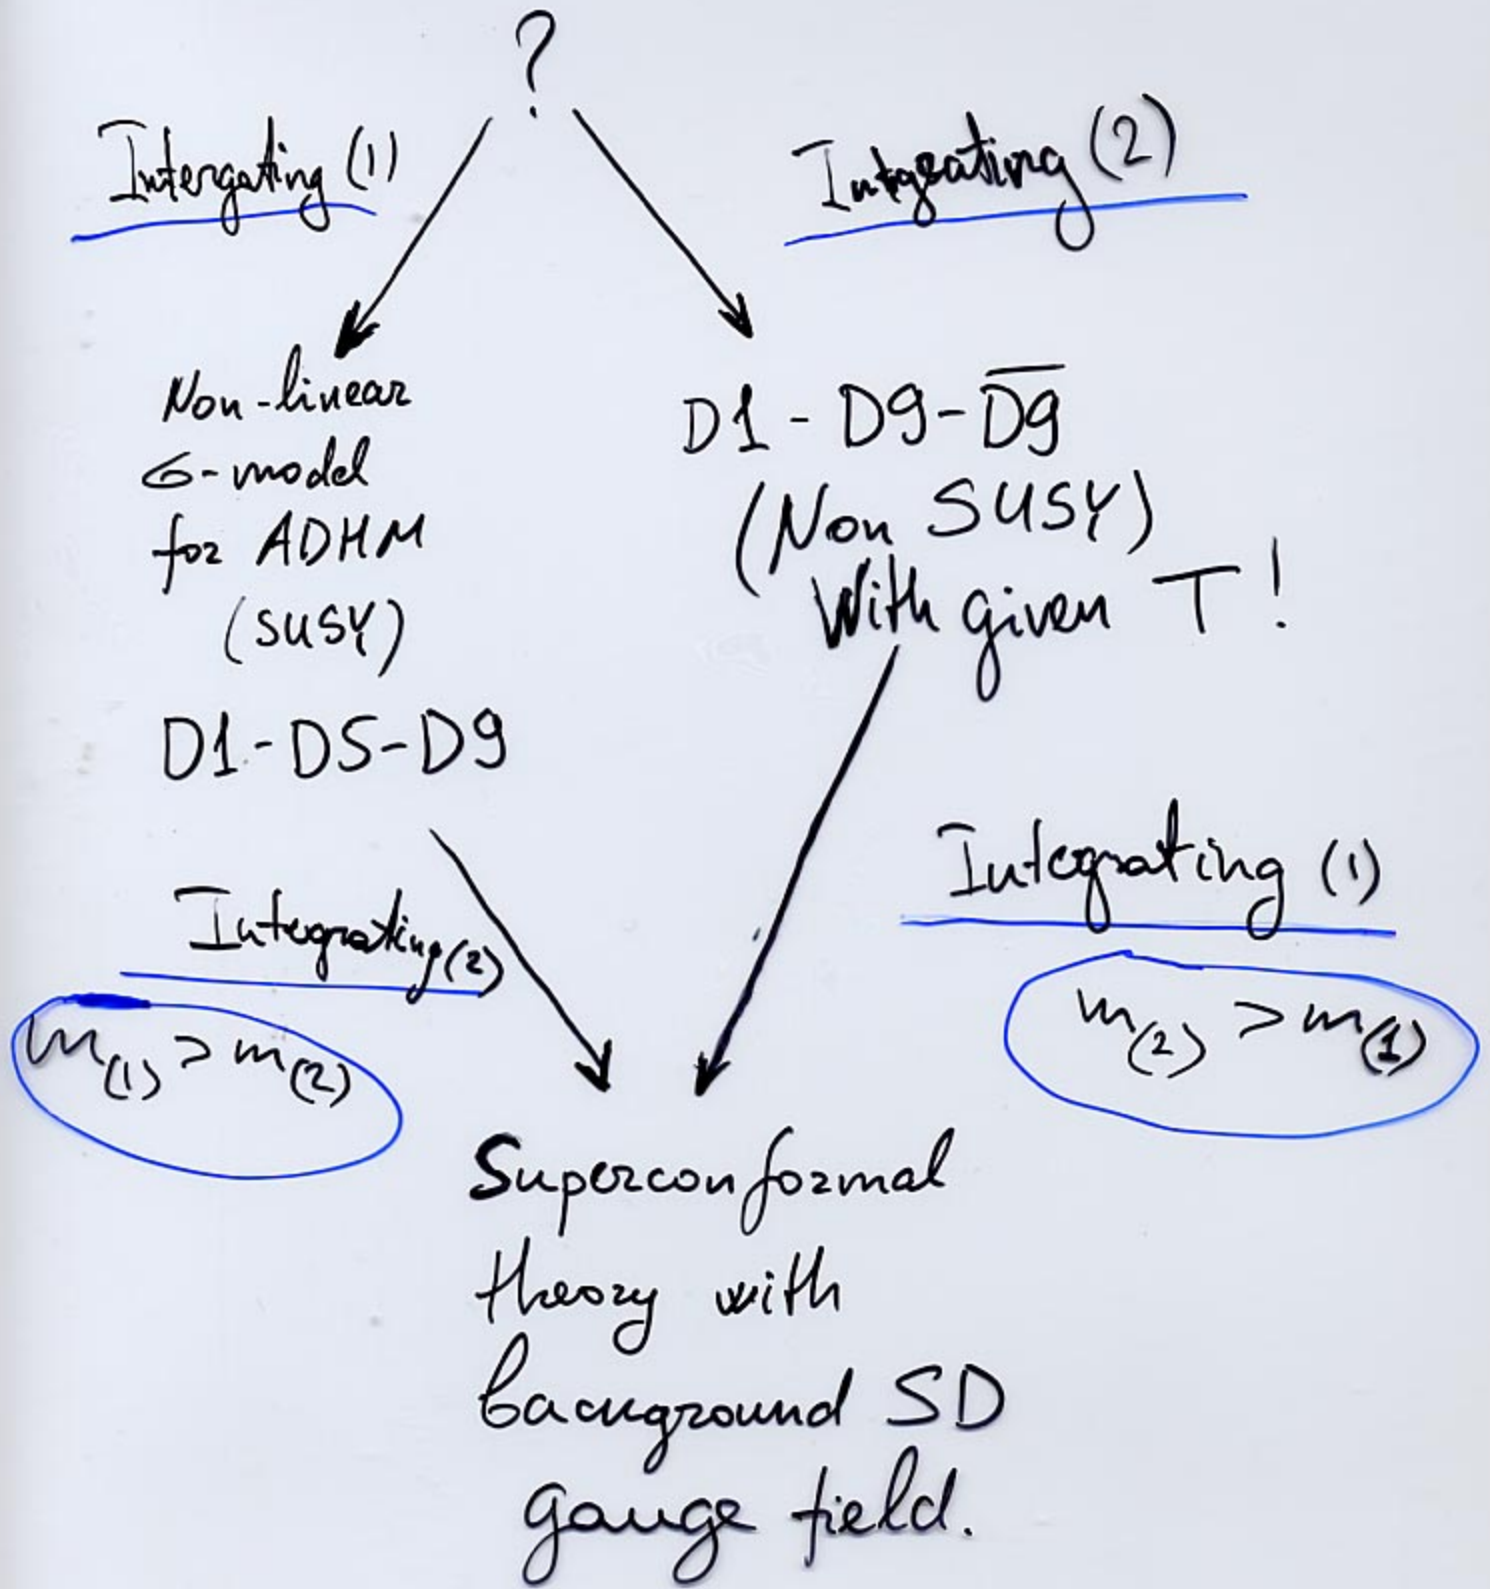 ?
Intergating (1)
Integrating (2)
Non-linear
σ-model
for ADHM
(SUSY)
D1-D5-D9
D1 - D9-D̅9̅
(Non SUSY)
With given T!
Integrating (2)
m₍₁₎ > m₍₂₎
Integrating (1)
m₍₂₎ > m₍₁₎
Superconformal
theory with
background SD
gauge field.